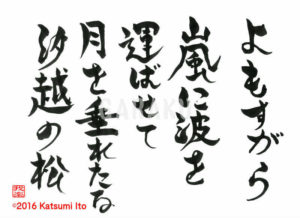 よもすがら
嵐に波を
運ばせて
月を垂れたる
汐越の松
©2016 Katsumi Ito